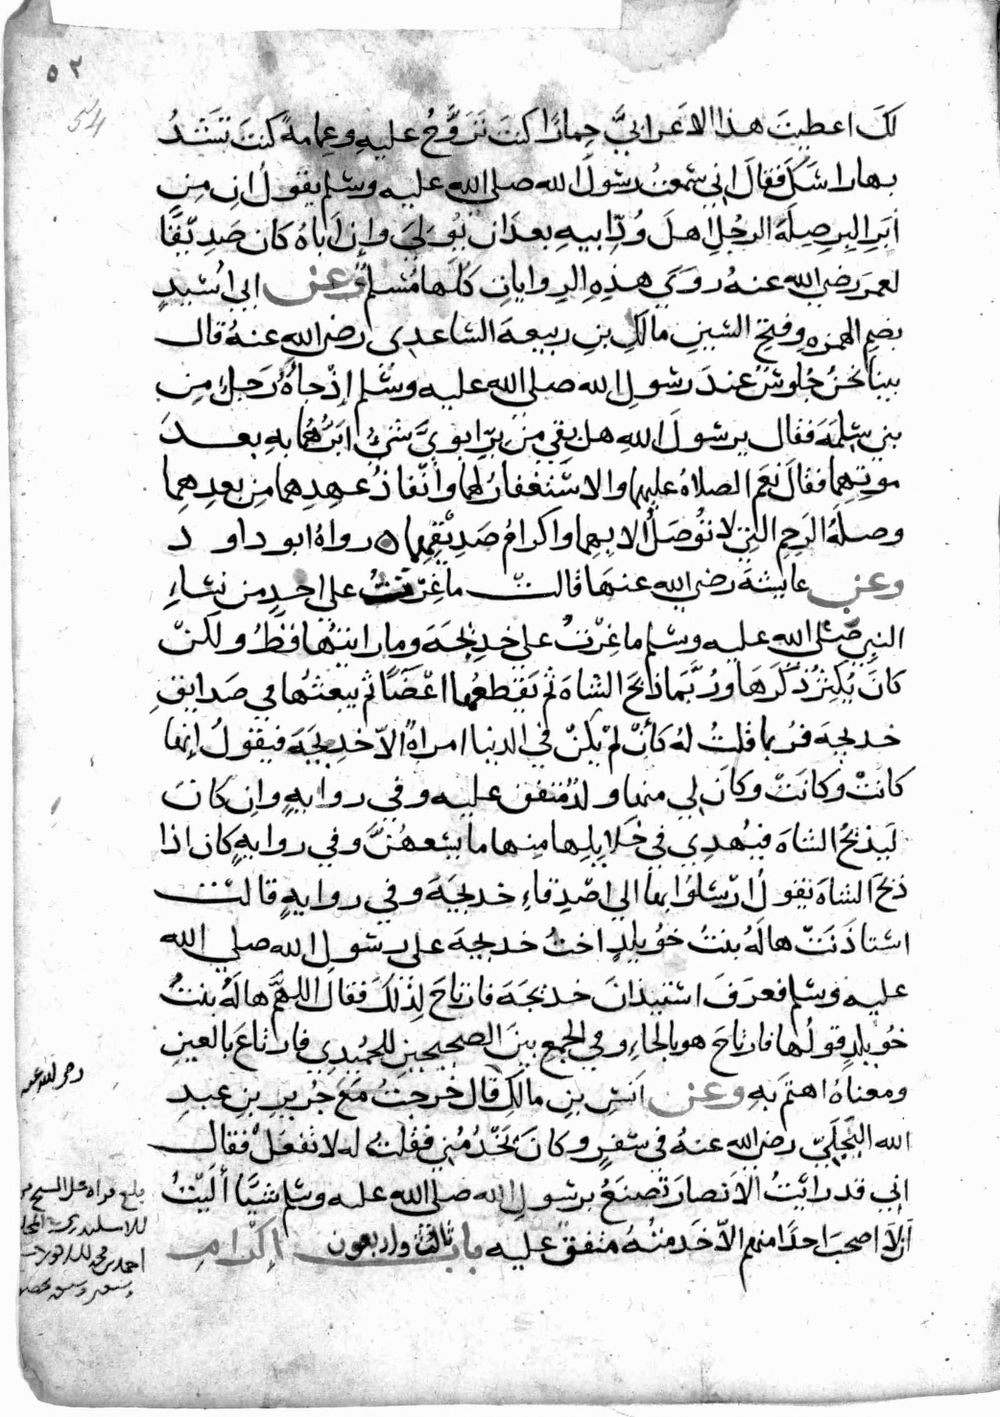 ٥٢
54
لك اعطيت هذا الاعرابي حمارا كنت تروح عليه وعمامة كنت تشد
بها راسك فقال اني سمعت رسول الله صلى الله عليه وسلم يقول ان من
ابر البر صلة الرجل اهل ود ابيه بعد ان يولي وان اباه كان صديقا
لعمر رضي الله عنه روي هذه الروايات كلها مسلم وعن ابي اسيد
بضم الهمزه وفتح السين مالك بن ربيعة الساعدي رضي الله عنه قال
بينا نحن جلوس عند رسول الله صلى الله عليه وسلم إذ جاه رجل من
بني سلمة فقال يرسول الله هل بقي من بر ابوي شئ ابرهما به بعد
موتهما فقال نعم الصلاة عليهما والاستغفار لهما وانفاذ عهدهما من بعدهما
وصلة الرحم التي لا توصل الا بهما واكرام صديقهما ه رواه ابو داود
وعن عايشة رضي الله عنها قالت ما غرت على احد من نساء
النبي صلى الله عليه وسلم ما غرت على خديجة وما رايتها قط ولكن
كان يكثر ذكرها وربما ذبح الشاة ثم يقطعها اعضا ثم يبعثها في صدايق
خديجة فربما قلت له كأن لم يكن في الدنيا امراة الا خديجة فيقول إنها
كانت وكانت وكان لي منها ولد متفق عليه وفي رواية وان كان
ليذبح الشاة فيهدي في خلايلها منها ما يسعهن وفي رواية كان اذا
ذبح الشاة يقول ارسلوا بها الى اصدقاء خديجة وفي رواية قالت
استاذنت هالة بنت خويلد اخت خديجة على رسول الله صلى الله
عليه وسلم فعرف استيذان خديجة فارتاح لذلك فقال اللهم هالة بنت
خويلد قولها فارتاح هو بالحاء وفي الجمع بين الصحيحين للحميدي فارتاع بالعين
ومعناه اهتم به وعن انس بن مالك قال خرجت مع جرير بن عبد
الله البجلي رضي الله عنه في سفر وكان يخدمني فقلت له لا تفعل فقال
اني قد رايت الانصار تصنع برسول الله صلى الله عليه وسلم شيا أليت
ان لا اصحب احدا منهم الا خدمته متفق عليه باب ثالث واربعون اكرام